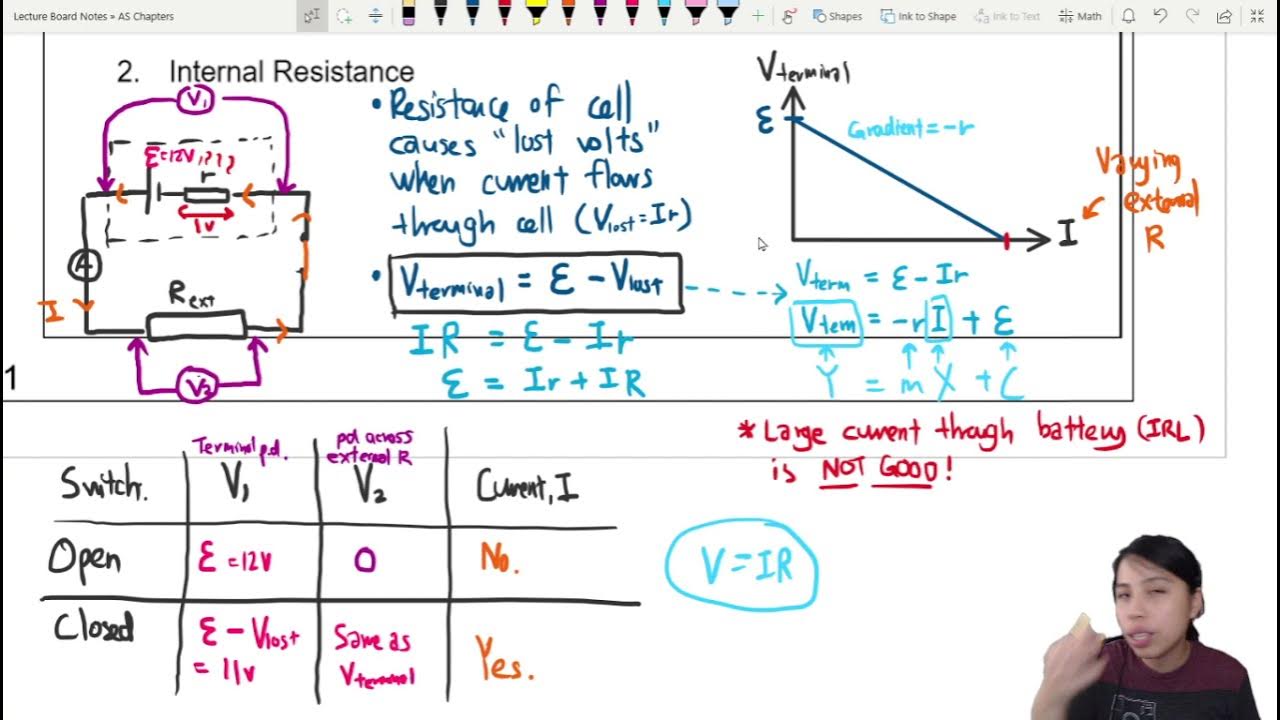 Lecture Board Notes » AS Chapters
Shapes
Ink to Shape
Ink to Text
Math
2. Internal Resistance
V₁
ε=12V, ???
r
1V
A
I
Rext
V₂
• Resistance of cell
causes "lost volts"
when current flows
through cell (Vlost = Ir)
• Vterminal = ε - Vlost
IR = ε - Ir
ε = Ir + IR
Vterminal
ε
Gradient = -r
I
Varying
external
R
Vterm = ε - Ir
Vtem = -rI + ε
Y = mX + C
1
* Large current though battery (IRL)
is NOT GOOD!
Terminal p.d.
pd across
external R
Switch. V₁ V₂ Current, I
Open ε = 12V 0 No.
Closed ε - Vlost Same as Yes.
= 11V Vterminal
V = IR